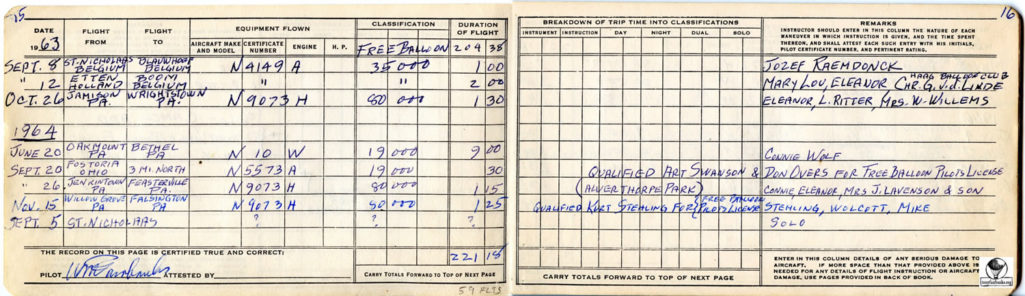 15
DATE
1963
FLIGHT FROM
FLIGHT TO
EQUIPMENT FLOWN
AIRCRAFT MAKE AND MODEL
CERTIFICATE NUMBER
ENGINE
H. P.
CLASSIFICATION
FREE BALLOON
DURATION OF FLIGHT
204 38
SEPT. 8 ST. NICHOLAAS BELGIUM BELGIUM N 4149 A 35 000 1 00
" 12 ETTEN HOLLAND BOOM BELGIUM " " 2 00
OCT. 26 JAMISON PA. WRIGHTSTOWN PA. N 9073 H 80 000 1 30
1964
JUNE 20 OAKMOUNT PA BETHEL PA N 10 W 19 000 9 00
SEPT. 20 FOSTORIA OHIO 3 MI. NORTH N 5573 A 19 000 30
" 26 JENKINTOWN PA FEASTERVILLE PA. N 9073 H 80 000 1 15
NOV. 15 WILLOW GROVE PA FALSINGTON PA N 9073 H 80 000 1 25
SEPT. 5 ST. NICHOLAAS ? ? ?
THE RECORD ON THIS PAGE IS CERTIFIED TRUE AND CORRECT:
221 18
PILOT
ATTESTED BY
CARRY TOTALS FORWARD TO TOP OF NEXT PAGE
16
BREAKDOWN OF TRIP TIME INTO CLASSIFICATIONS
INSTRUMENT
INSTRUCTION
DAY
NIGHT
DUAL
SOLO
REMARKS
INSTRUCTOR SHOULD ENTER IN THIS COLUMN THE NATURE OF EACH
MANEUVER IN WHICH INSTRUCTION IS GIVEN, AND THE TIME SPENT
THEREON, AND SHALL ATTEST EACH SUCH ENTRY WITH HIS INITIALS,
PILOT CERTIFICATE NUMBER, AND PERTINENT RATING.
JOZEF RAEMDONCK
HAAG BALLOON CLUB
MARY LOU, ELEANOR CHR. G. v.d. LINDE
ELEANOR, L. RITTER, MRS. W. WILLEMS
CONNIE WOLF
QUALIFIED ART SWANSON & DON OVERS FOR FREE BALLOON PILOTS LICENSE
(ALVERTHORPE PARK) CONNIE ELEANOR, MRS J. LAVENSON & SON
QUALIFIED KURT STEHLING FOR FREE BALLOON PILOTS LICENSE STEHLING, WOLCOTT, MIKE
SOLO
CARRY TOTALS FORWARD TO TOP OF NEXT PAGE
ENTER IN THIS COLUMN DETAILS OF ANY SERIOUS DAMAGE TO
AIRCRAFT. IF MORE SPACE THAN THAT PROVIDED ABOVE IS
NEEDED FOR ANY DETAILS OF FLIGHT INSTRUCTION OR AIRCRAFT
DAMAGE, USE PAGES PROVIDED IN BACK OF BOOK.